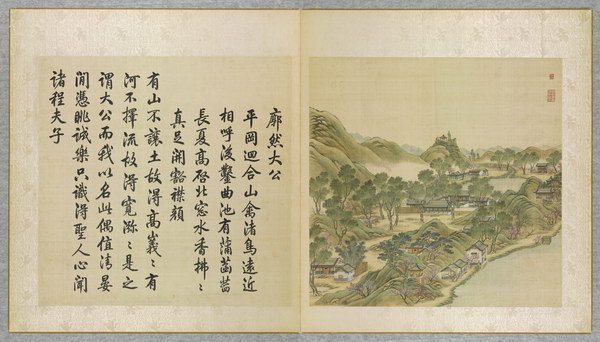 廓然大公
平岡迴合山禽渚鳥遠近
相呼後鑿曲池有蒲菡萏
長夏高啓北窓水香拂〻
真足開豁襟顏
有山不讓土故得高巍〻有
河不擇流故得寬瀰〻是之
謂大公而我以名此偶值清晏
閒憑眺誠樂只識得聖人心聞
諸程夫子